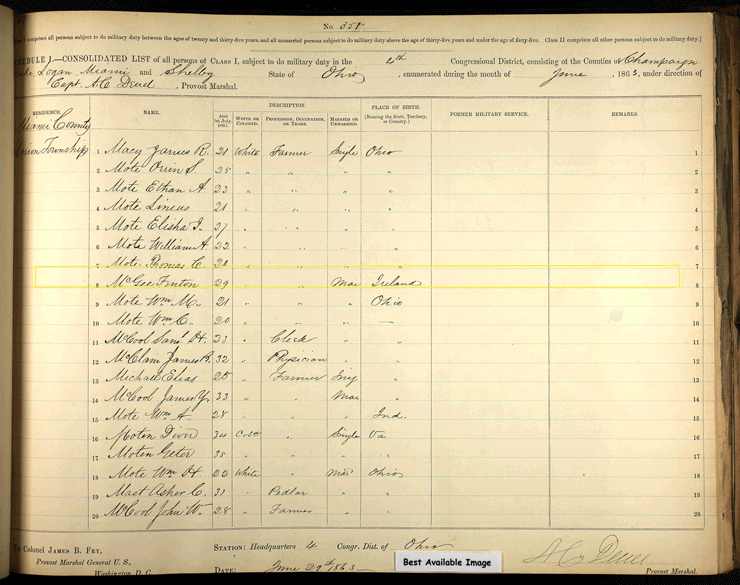 No. 358
Class I comprises all persons subject to do military duty between the ages of twenty and thirty-five years, and all unmarried persons subject to do military duty above the age of thirty-five years and under the age of forty-five. Class II comprises all other persons subject to do military duty.]
SCHEDULE I.—CONSOLIDATED LIST of all persons of CLASS I, subject to military duty in the 4th Congressional District, consisting of the Counties of Champaign
Logan Miami and Shelby State of Ohio, enumerated during the month of June, 1863, under direction of
Capt. A C Deuel, Provost Marshal.
RESIDENCE. NAME. DESCRIPTION. PLACE OF BIRTH. FORMER MILITARY SERVICE. REMARKS.
AGE 1st July, 1863. WHITE OR COLORED. PROFESSION, OCCUPATION, OR TRADE. MARRIED OR UNMARRIED. (Naming the State, Territory, or Country.)
Miami County
Union Township
1 Macy James R. 21 White Farmer Single Ohio 1
2 Mote Orrin S. 25 " " " " 2
3 Mote Ethan A 23 " " " " 3
4 Mote Lineus 21 " " " " 4
5 Mote Elisha J. 27 " " " " 5
6 Mote William A 22 " " " " 6
7 Mote Thomas C. 20 " " " " 7
8 McGee Finton 29 " " Mar Ireland 8
9 Mote Wm M. 21 " " " Ohio 9
10 Mote Wm C. 20 " " " — 10
11 McCool Saml. H. 23 " Clerk " " 11
12 McClain James R. 32 " Physician " " 12
13 Michael Elias 25 " Farmer Sing " 13
14 McCool James Y. 33 " " Mar " 14
15 Mote Wm A. 28 " " " Ind. 15
16 Moten 34 Cold " Single Va 16
17 Moten Geter 35 " " " " 17
18 Mote Wm H. 22 White " Mar Ohio 18
19 Mast Asher C. 31 " Pedlar " " 19
20 McCool John W. 28 " Farmer " " 20
To Colonel JAMES B. FRY,
Provost Marshal General U. S.,
Washington, D. C.
STATION: Headquarters 4 Congr. Dist. of Ohio
DATE: June 29th 1863
A C Deuel
Provost Marshal.
Best Available Image